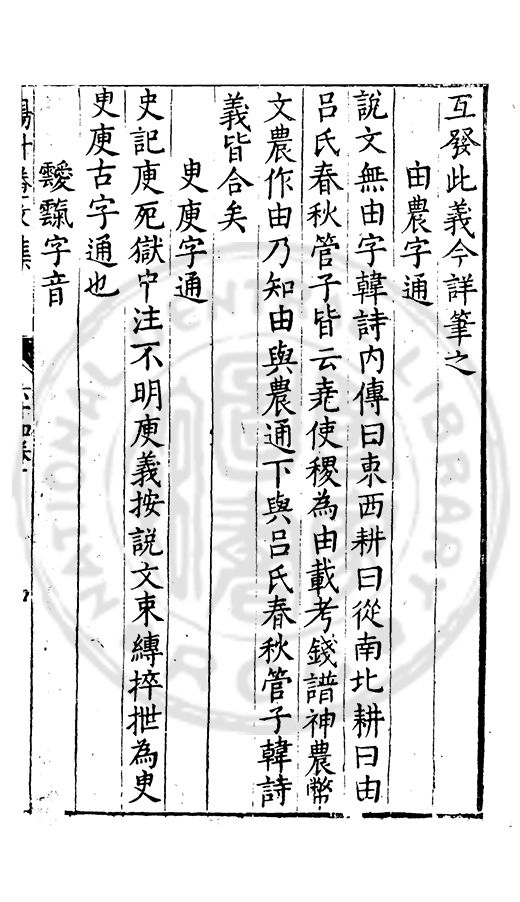 互發此義今詳筆之
由農字通
說文無由字韓詩內傳曰東西耕曰從南北耕曰由
呂氏春秋管子皆云堯使稷為由載考錢譜神農幣
文農作由乃知由與農通下與呂氏春秋管子韓詩
義皆合矣
㬰庾字通
史記庾死獄中注不明庾義按說文束縛捽抴為㬰
㬰庾古字通也
靉靅字音